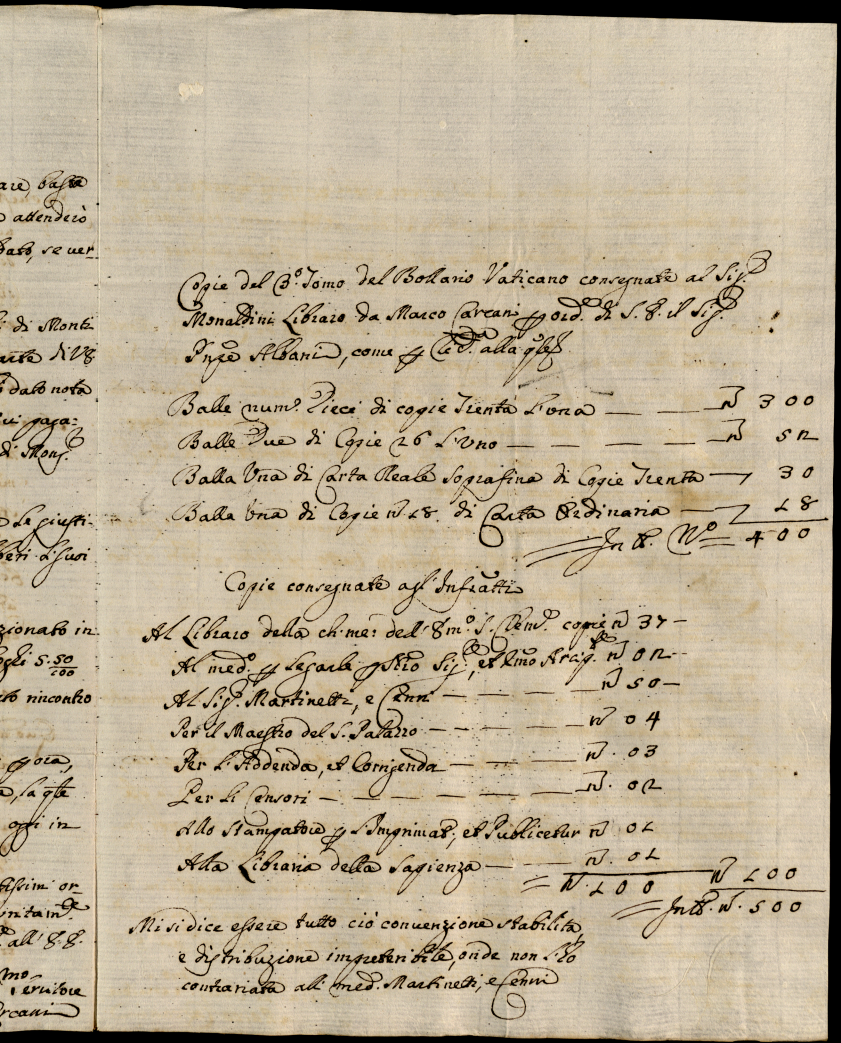 are, basta
attenderò
bato, se ver
di Monti
arte di V8
dato nota
di Mons.r
Le giusti-
beri d'suoi
zionato in
ogli 5.50/100
rincontro
ogni in
issim or-
all' E.E.
mo
ervitore
rcani
Copie del 3.o Tomo del Bollario Vaticano consegnate al Sig.r
Monaldini Libraro da Marco Carcani p ord.e di S. E. il Sig.r
Pnpe Albani, come p alla
Balle num.o Dieci di copie Trenta L'una — — — n 300
Balle Due di Copie 26 L'uno — — — — — n 52
Balla Una di Carta Reale Soprafina di Copie Trenta — 30
Balla Una di Copie n 18. di Carta Ordinaria — 18
In tt. No = 400
Copie consegnate agl' Infratti
Al Libraro della ch: me: dell' Emo. S. Clem.e copie n 37 —
Al med.o p Legarle Sig.re, et n 02 —
Al Sig.r Martinetti, e Cenni — — — — n 50 —
Per il Maestro del S. Palazzo — — — — n 04
Per L'Addenda, et Corrigenda — — — — n. 03
Per li Censori — — — — — — n. 02
Allo Stampatore p L'Imprimat., et Publicetur n 01
Alla Libraria della Sapienza — — — n. 01
= n. 100 n 100
In tt. n. 500
Mi si dice essere tutto ciò convenzione stabilita,
e distribuzione impreteribile, onde non l'ho
contrariata all' med.i Martinetti, e Cenni